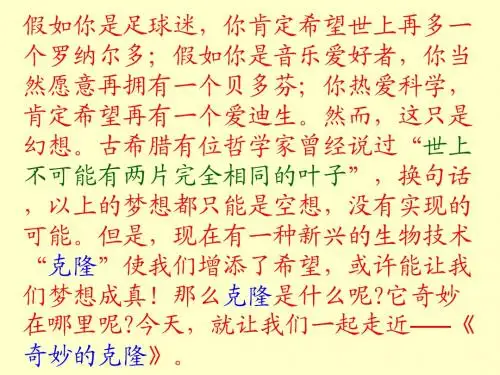 假如你是足球迷，你肯定希望世上再多一
个罗纳尔多；假如你是音乐爱好者，你当
然愿意再拥有一个贝多芬；你热爱科学，
肯定希望再有一个爱迪生。然而，这只是
幻想。古希腊有位哲学家曾经说过“世上
不可能有两片完全相同的叶子”，换句话
，以上的梦想都只能是空想，没有实现的
可能。但是，现在有一种新兴的生物技术
“克隆”使我们增添了希望，或许能让我
们梦想成真！那么克隆是什么呢?它奇妙
在哪里呢?今天，就让我们一起走近——《
奇妙的克隆》。